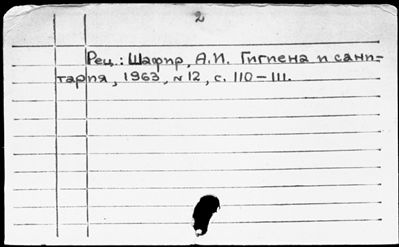 2
Рец.: Шафир, А.И. Гигиена и сани-
тария, 1963, № 12, с. 110-111.